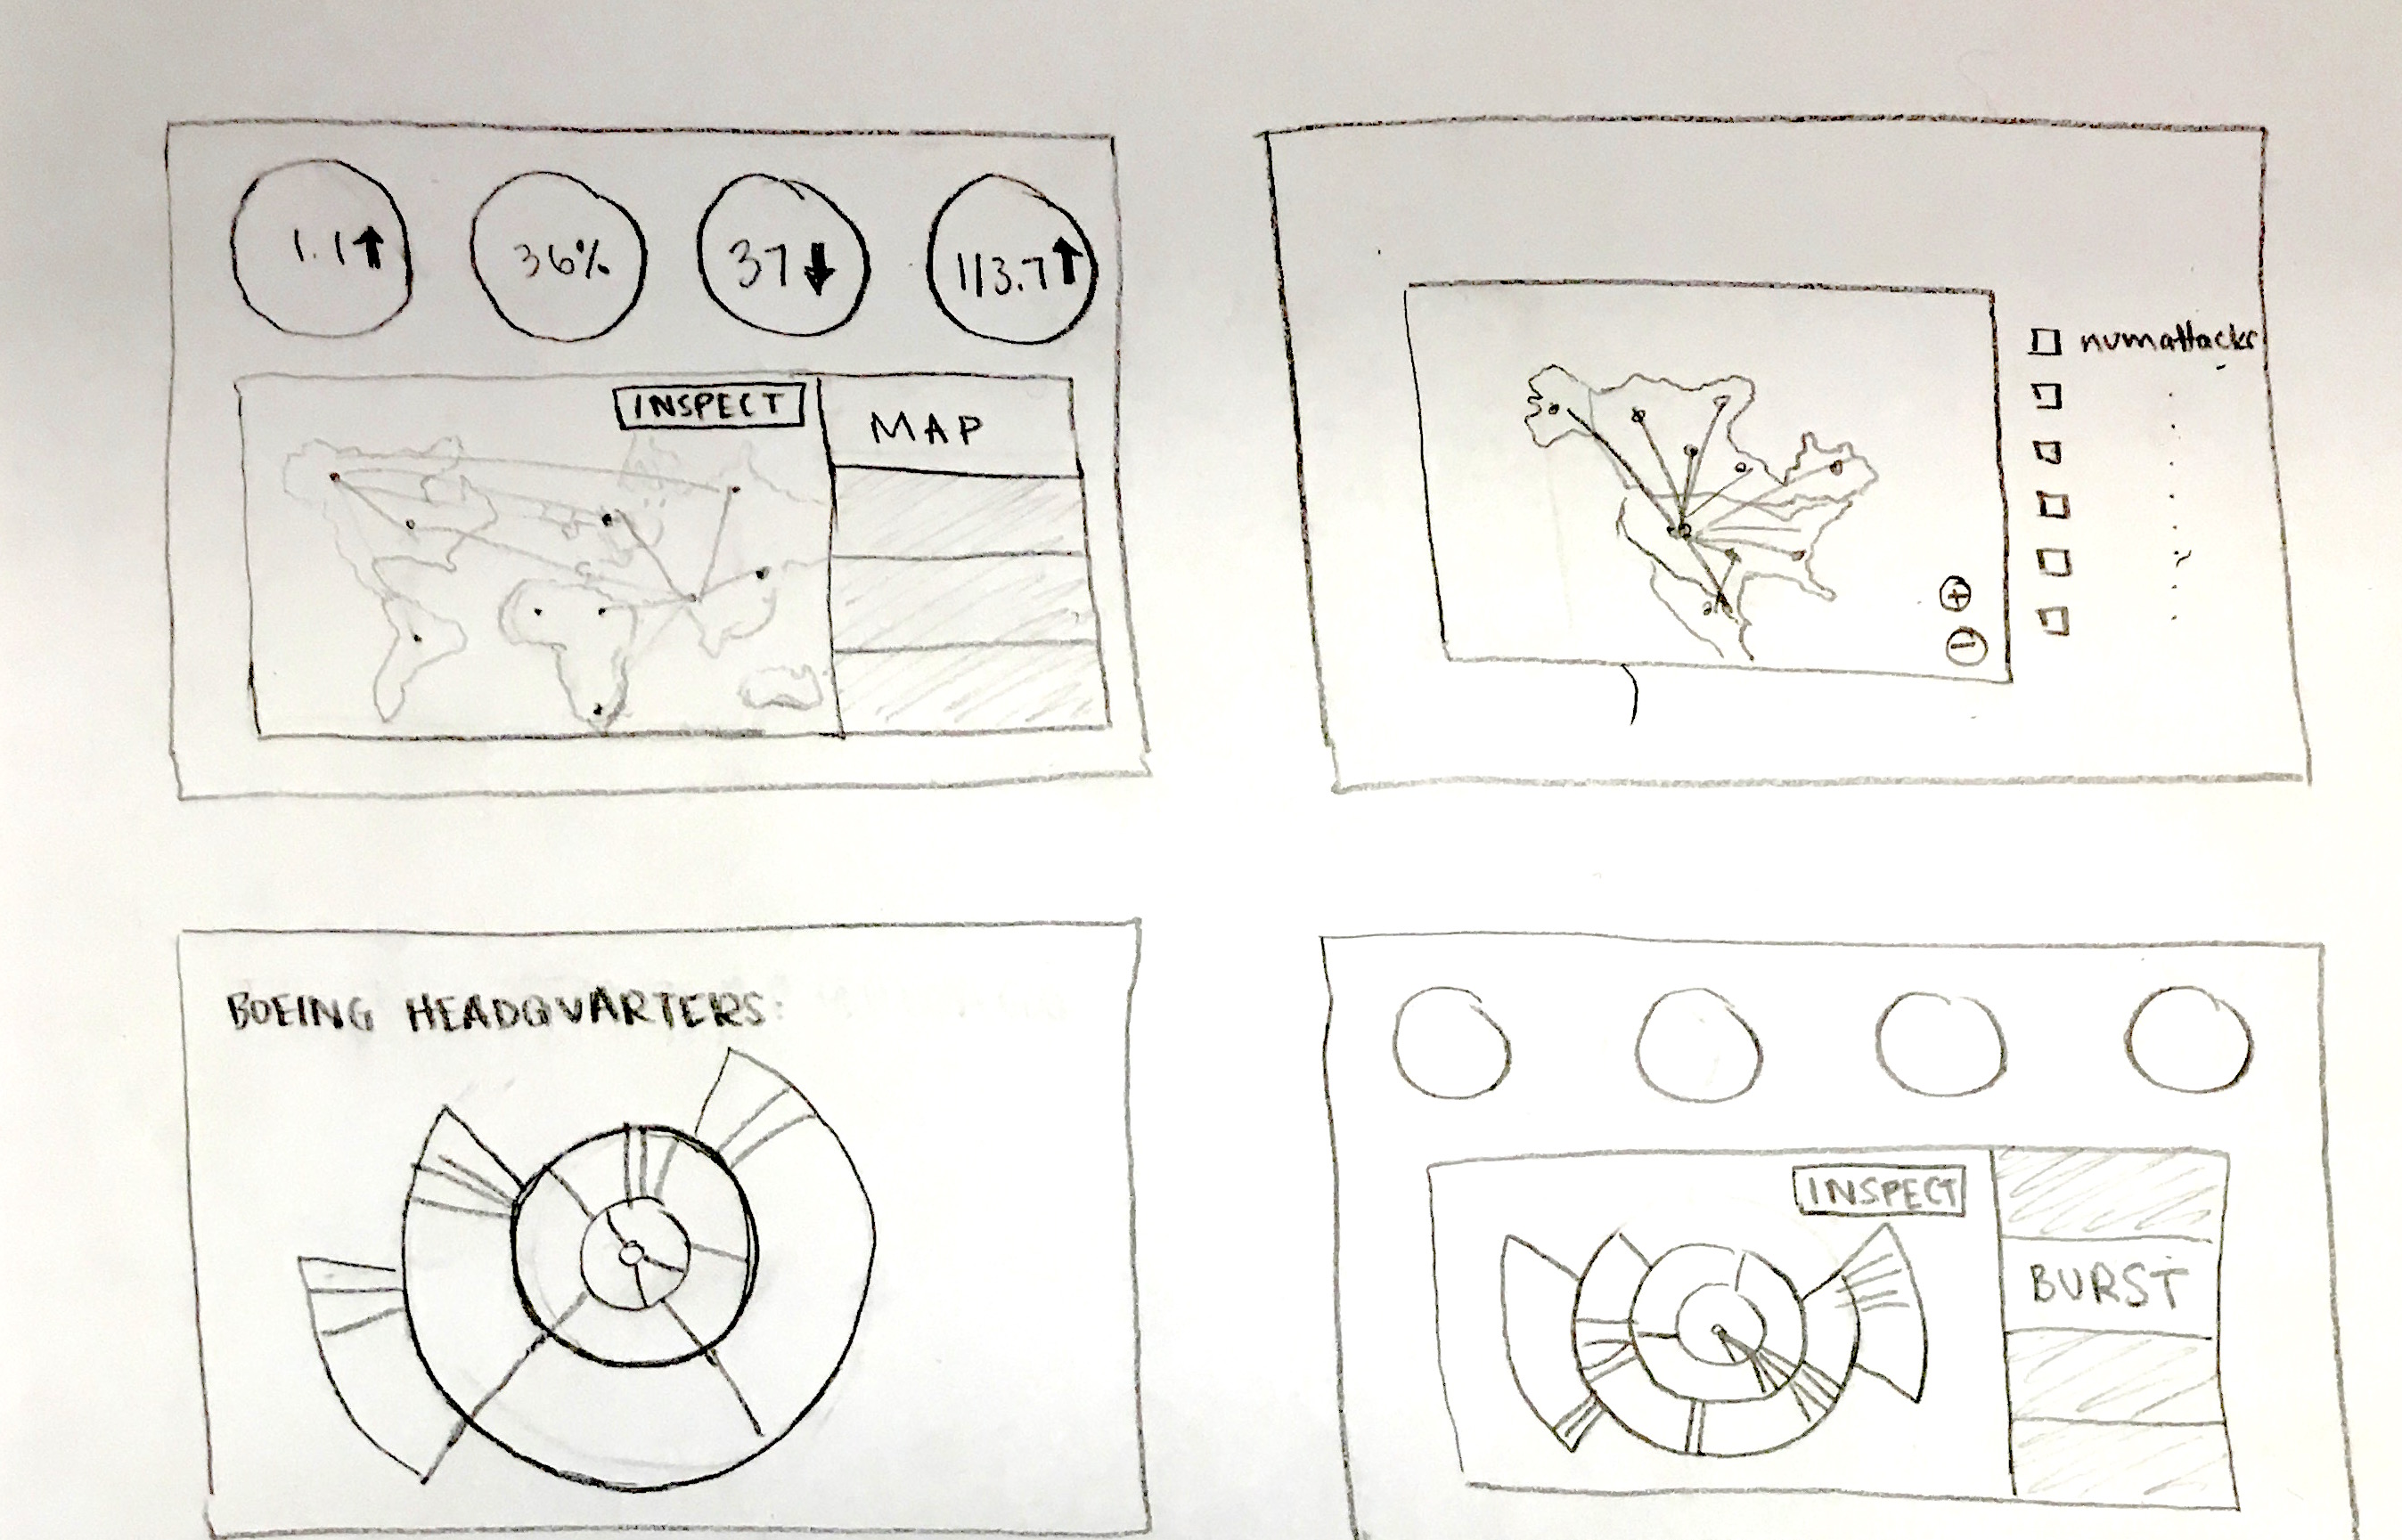 1.1↑
36%
37↓
113.7↑
INSPECT
MAP
numattacks
+
-
BOEING HEADQUARTERS:
INSPECT
BURST